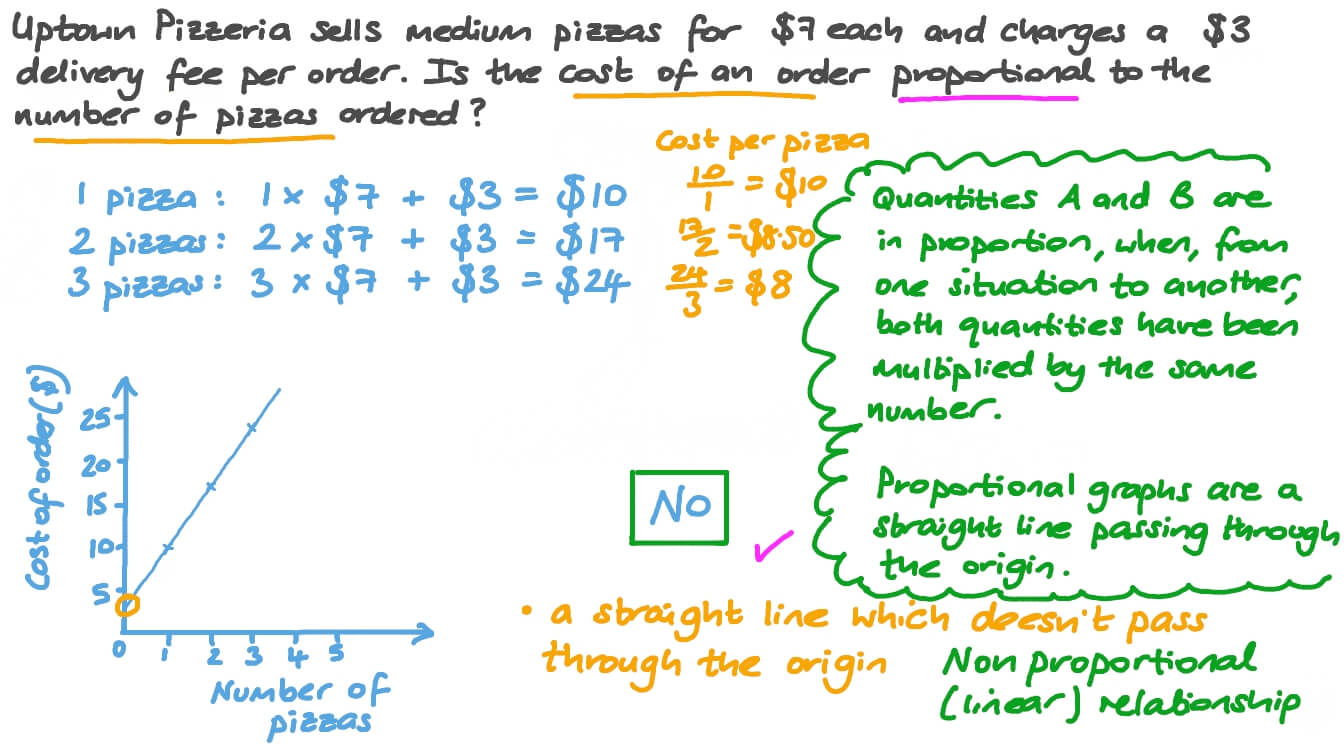 Uptown Pizzeria sells medium pizzas for $7 each and charges a $3
delivery fee per order. Is the cost of an order proportional to the
number of pizzas ordered?
1 pizza : 1 x $7 + $3 = $10
2 pizzas : 2 x $7 + $3 = $17
3 pizzas : 3 x $7 + $3 = $24
Cost per pizza
10/1 = $10
17/2 = $8.50
24/3 = $8
Quantities A and B are
in proportion, when, from
one situation to another,
both quantities have been
multiplied by the same
number.
Proportional graphs are a
straight line passing through
the origin.
Cost of order ($)
25
20
15
10
5
0 1 2 3 4 5
Number of
pizzas
NO
• a straight line which doesn't pass
through the origin
Non proportional
(linear) relationship